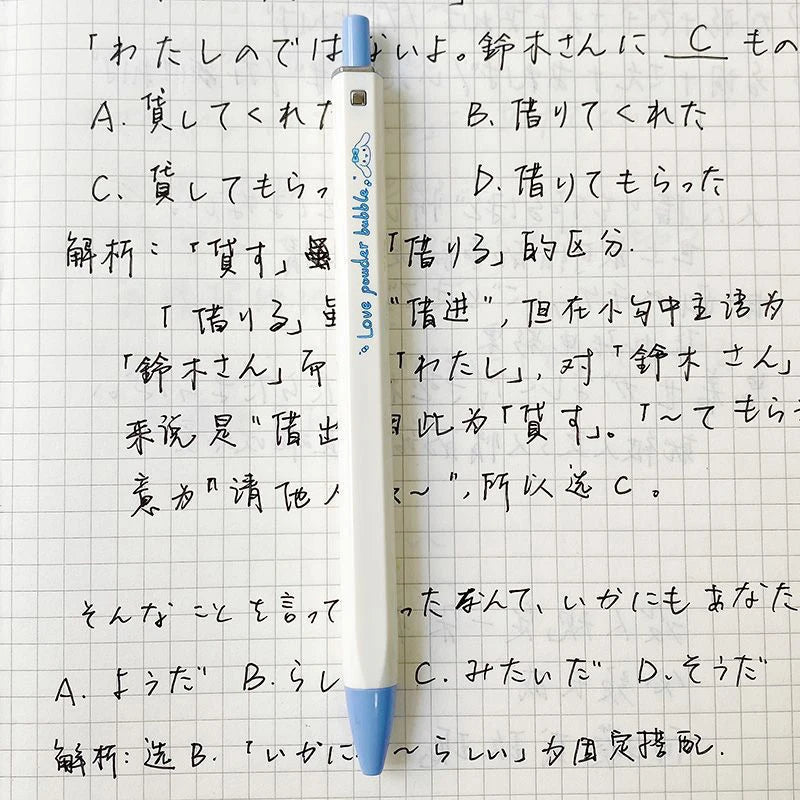 「わたしのではないよ。鈴木さんに C もの
A. 貸してくれた
B. 借りてくれた
C. 貸してもらっ
D. 借りてもらった
解析：「貸す」 「借りる」的区分.
「借りる」虽 "借进", 但在小句中主语为
「鈴木さん」而 「わたし」, 对「鈴木さん」
来说是"借出 因此为「貸す」。「～てもらう
意为"请他人 ～", 所以选C。
そんなことを言って ったなんて、いかにもあなた
A. ようだ B. らし C. みたいだ D. そうだ
解析: 选B. 「いかに ～らしい」为固定搭配.
Love powder bubble